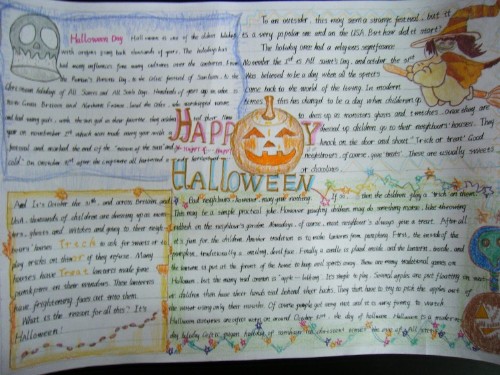 Halloween Day. Halloween is one of the oldest holidays
with origins going back thousands of years. The holiday has
had many influences from many cultures over the centuries. From
the Roman's Pomona Day, to the Celtic festival of Samhain, to the
Christian holidays of All Saints and All Souls Days. Hundreds of years ago in what is
now Great Britain and Northern France, lived the Celts. who worshipped nature
and had many gods, with the sun god as their favorite.
year on november 1st
festival and marked the end of the "season of the sun" and
cold". On October 31st after the crops were all harvested
To an outsider, this may seem a strange festival, but it
is a very popular one and in the USA. But how did it start?
The holiday once had a religious significance.
November the 1st is All Saint's Day, and october the 31st
was believed to be a day when all the spirits
came back to the world of the living. In modern
times this has changed to be a day when children
to dress up in monsters ghosts and witches. Once they are
dressed up children go to their neighbours' houses. They
knock on the door and shout "Trick or treat!" Good
neighbours, of course, give "treats". These are usually sweets
or chocolates.
HAPPY
HALLOWEEN
And It's October the 31st, and across Britain and
USA, thousands of children are dressing up as mons-
ters, ghosts and witches and going to their neigh-
bours' houses Trick to ask for sweets or to
play tricks on them or if they refuse. Many
houses have Treat lanterns made from
pumpkins on their windows. These lanterns
have frightening faces cut into them.
What is the reason for all this? It's
Halloween!
Bad neighbours, however, may give nothing. If so, then the children play a "trick on them."
This may be a simple practical joke. However naughty children may do something worse, like throwing
rubbish on the neighbour's garden. Nowadays, of course, most neighbour's always give a treat. After all,
it's fun for the children. Another tradition is to make lanterns from pumpkins. First, the inside of the
pumpkin, traditionally a smiling, devil face. Finally a candle is placed inside and the lantern, inside, and
the lantern is put at the front of the house to keep bad spirits away. There are many traditional games on
Halloween, but the most well known is "apple-bobbing". It's simple to play. Several apples are put floating in
or children then have their hands tied behind their backs. They then have to try to pick the apples out of
the water using only their mouths. Of course people get very wet and it is very funny to watch.
Halloween ceremonies are often every on around October 31st, the day of halloween. Halloween is a modern
day holiday